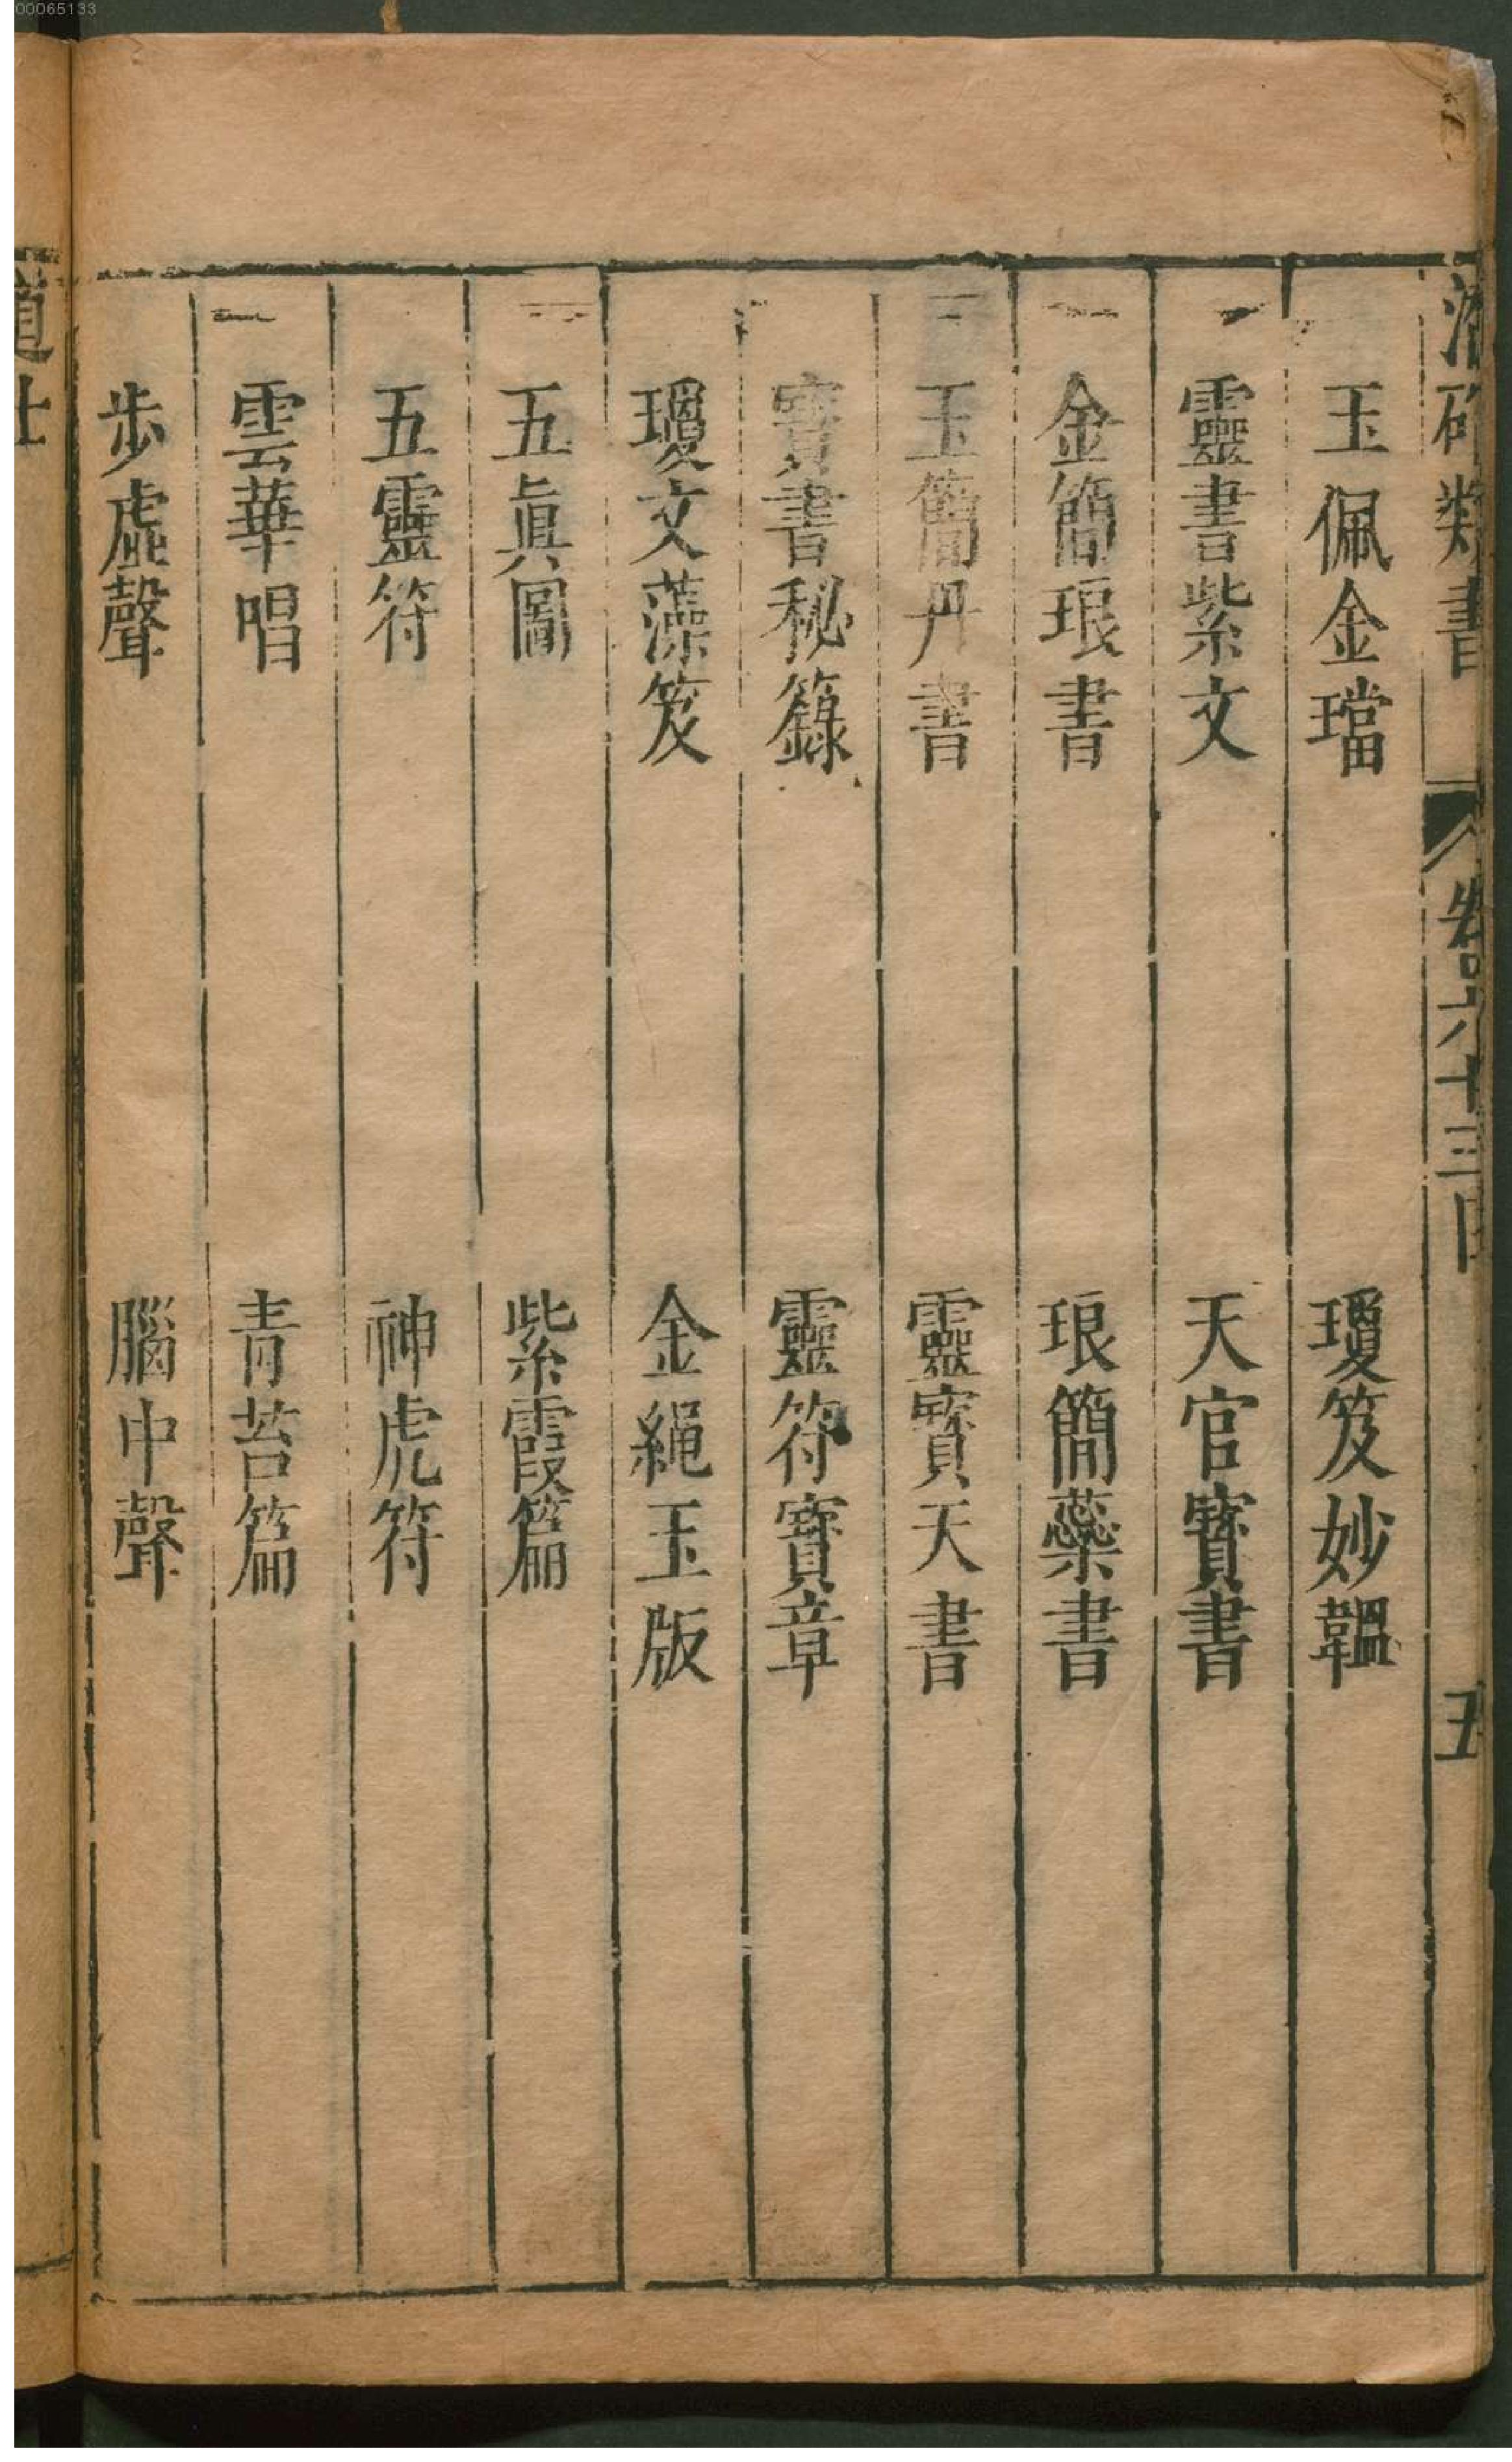 00065133
類書
卷六十三
五
玉佩金璫 瓊笈妙韞
靈書紫文 天官寳書
金簡琅書 琅簡蘂書
玉簡丹書 靈寳天書
寳書秘籙 靈符寳章
瓊文藻笈 金繩玉版
五眞圖 紫霞篇
五靈符 神虎符
雲華唱 青苔篇
步虛聲 腦中聲
道士